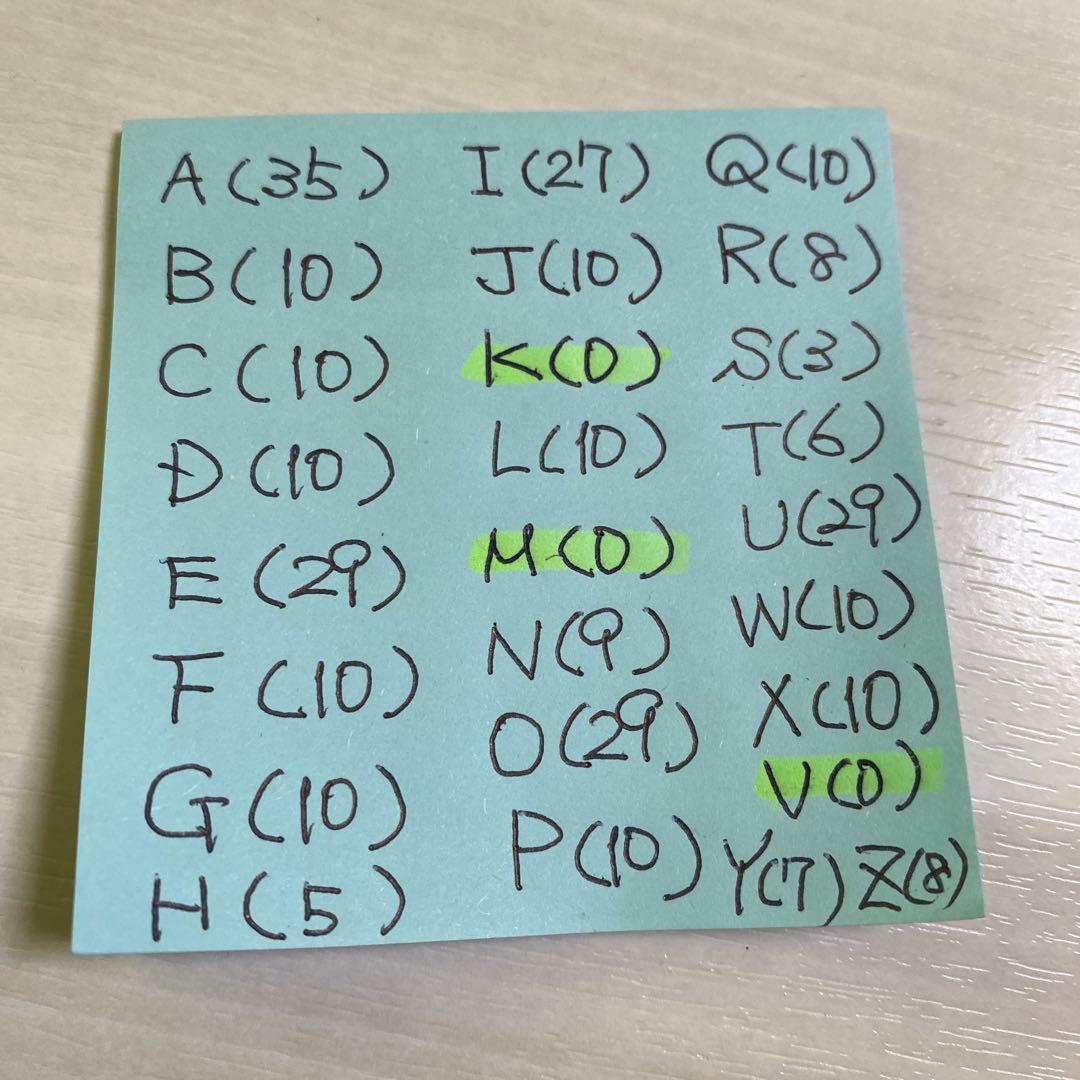 A(35)
B(10)
C(10)
D(10)
E(29)
F(10)
G(10)
H(5)
I(27)
J(10)
K(0)
L(10)
M(0)
N(9)
O(29)
P(10)
Q(10)
R(8)
S(3)
T(6)
U(29)
W(10)
X(10)
V(0)
Y(7) Z(8)